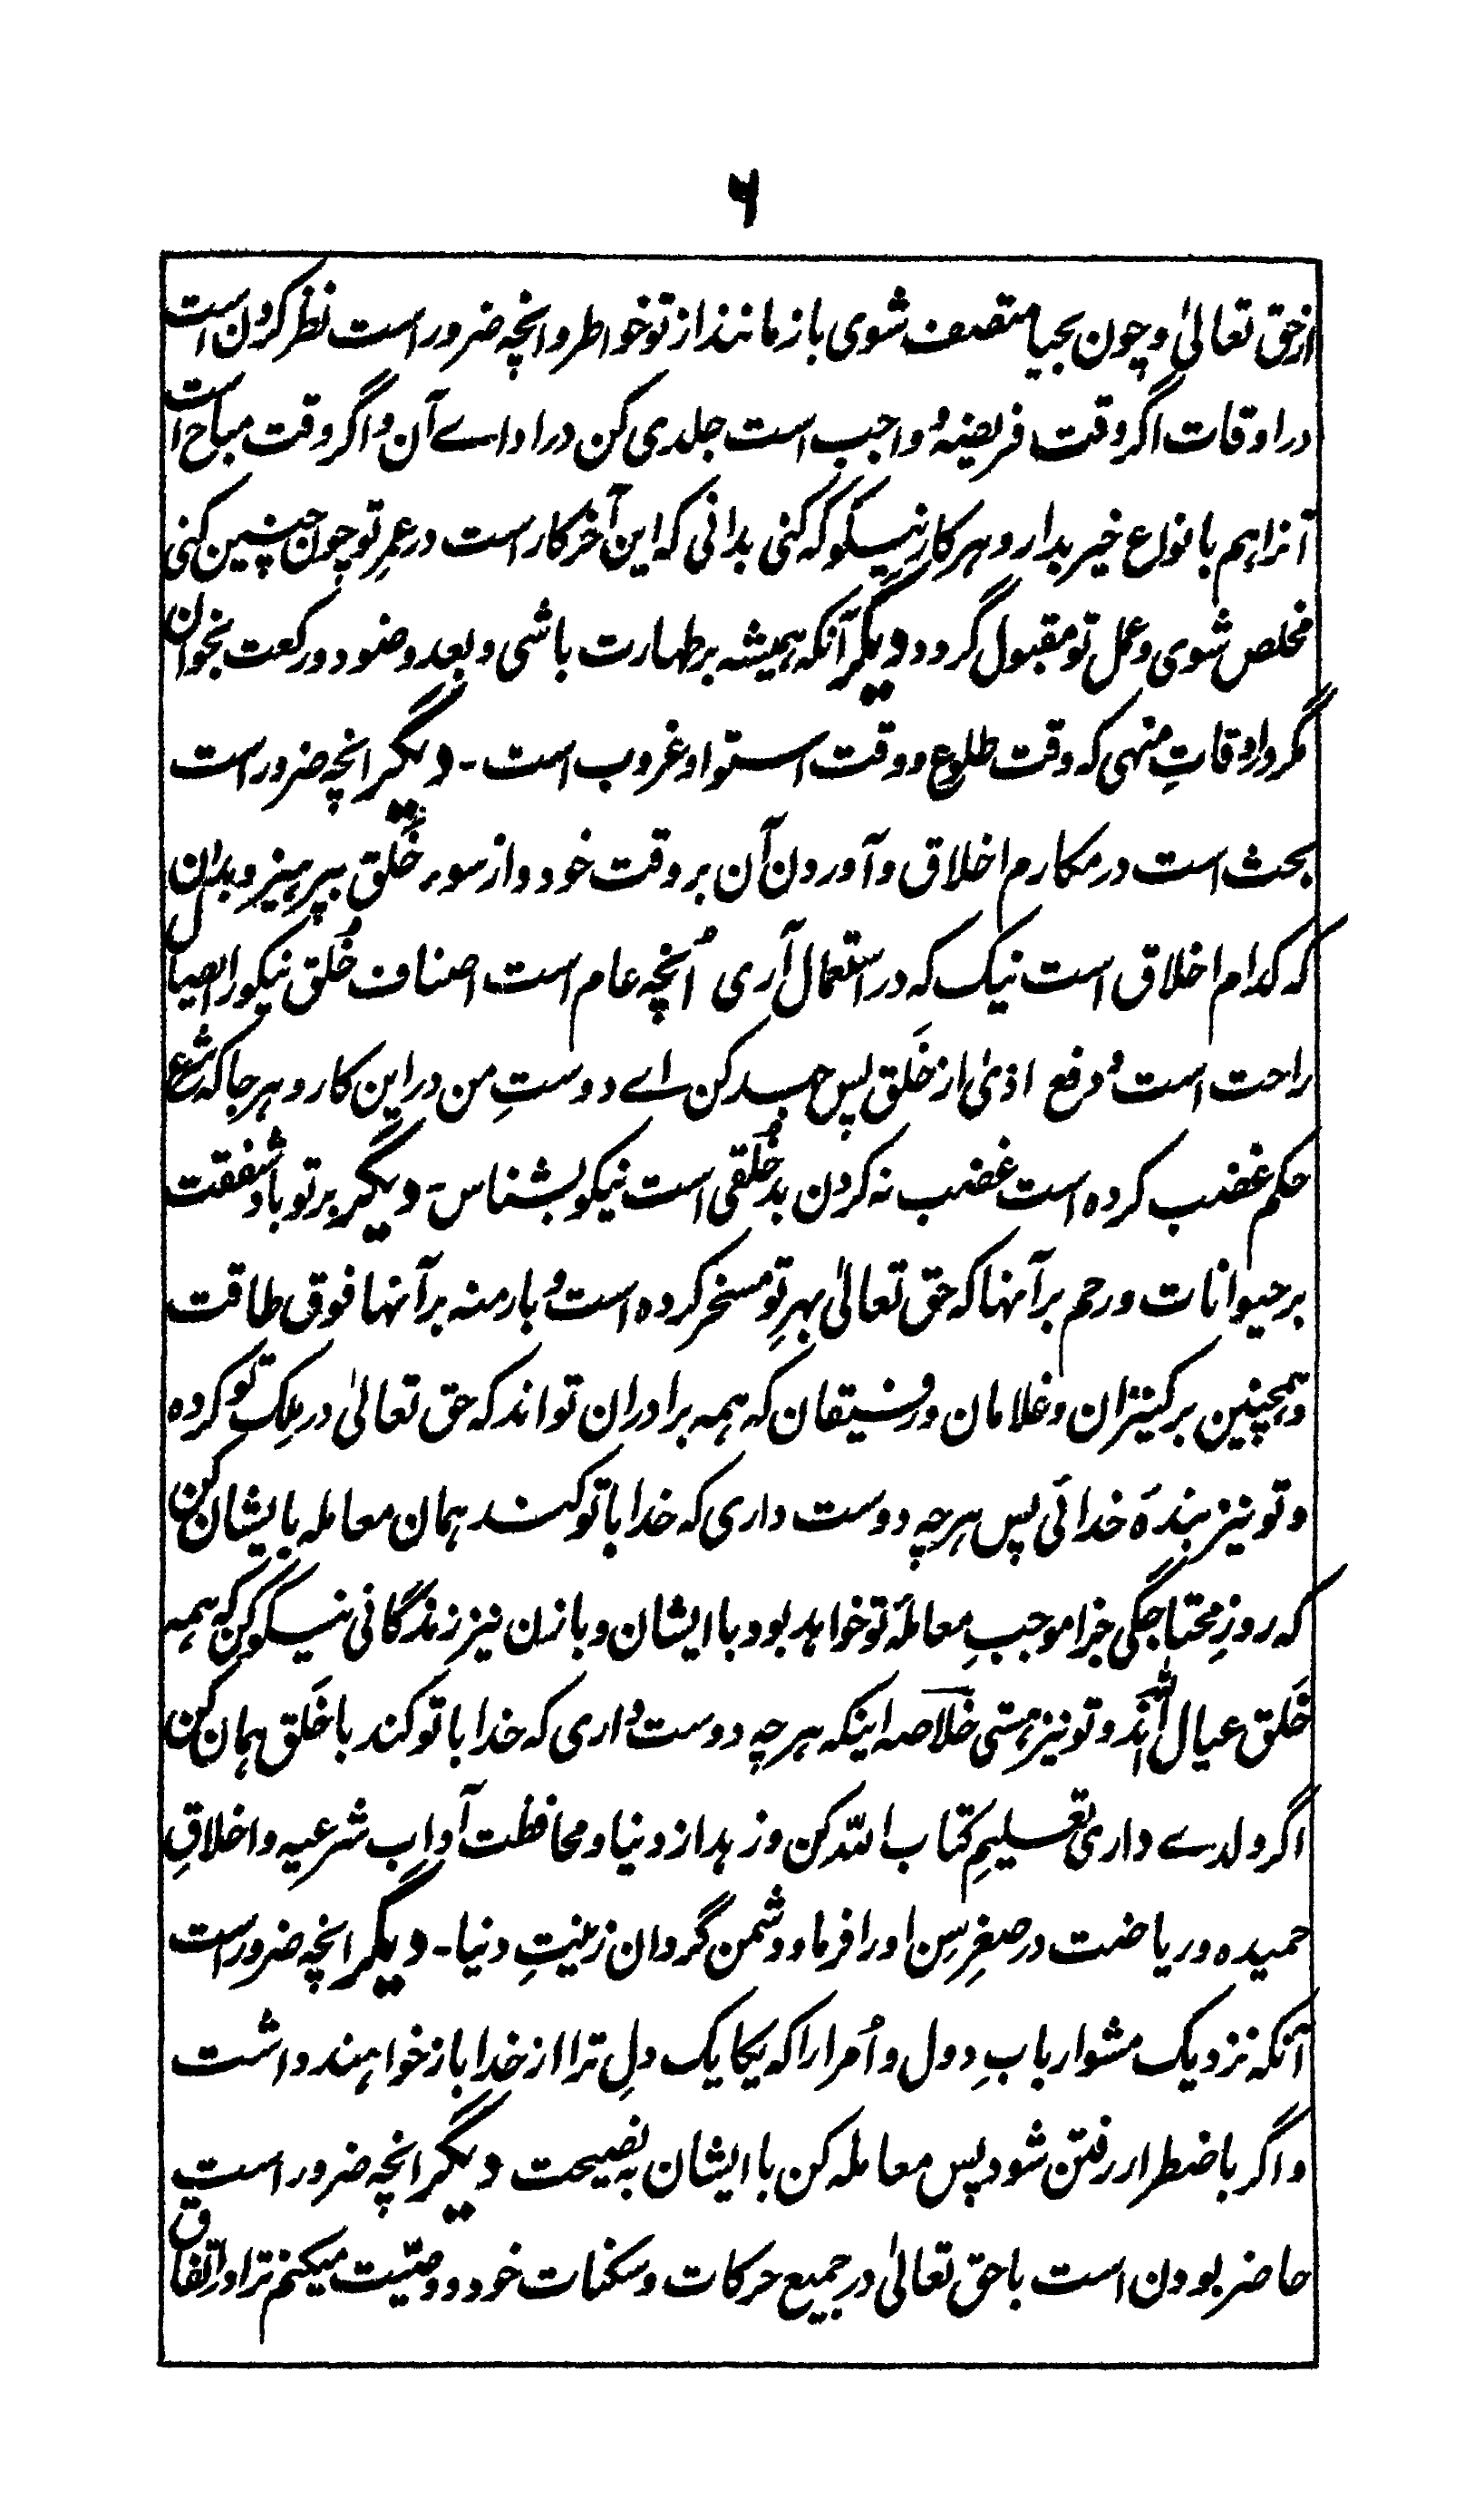 ۶
از حق تعالیٰ و چون بحیا متصف شوی باز مانند از تو خواطر و انچه ضرور است نظر کردن است
در اوقات اگر وقت فریضهٔ و واجب است جلدی کن در اداے آن و اگر وقت مباح است
آنرا هم بانواع خیر بدار و هر کار نیکو که کنی بدانی که این آخر کار است در عمرِ تو چون چنین کنی
مخلص شوی و عمل تو مقبول گردد دیگر آنکه همیشه بر طهارت باشی و بعد وضو دو رکعت بخوان
مگر در اوقاتِ منهی که وقت طلوع و وقت استوا و غروب است - دیگر انچه ضرور است
بحث است در مکارم اخلاق و آوردن آن بر وقت خود و از سوء خُلق بپرهیز و بدان
که کدام اخلاق است نیک که در استعمال آری اُنچه عام است اصناف خُلق نیکو را ایصال
راحت است و دفع اذیٰ از خَلق پس جهد کن اے دوستِ من در این کار و هر جا که شرع
حکم غضب کرده است غضب نه کردن بد خُلقی است نیکو بشناس - دیگر بر تو باد شفقت
بر حیوانات و رحم بر آنها که حق تعالیٰ بهرِ تو مسخر کرده است و بار منه بر آنها فوق طاقت
و همچنین بر کنیزان و غلامان و رفیقان که همه برادران تو اند که حق تعالیٰ در مِلک تو کرده
و تو نیز بندهٔ خدائی پس هرچه دوست داری که خدا با تو کند همان معامله بایشان کن
که روزِ محتاجگی جزا موجبِ معاملهٔ تو خواهد بود با ایشان و با زن نیز زندگانی نیکو کن که همه
خَلق عیال الله اند و تو نیز هستی خلاصه اینکه هر چه دوست داری که خدا با تو کند با خَلق همان کن
اگر ولدے داری تعلیمِ کتاب الله کن و زهد از دنیا و محافظت آداب شرعیه و اخلاقِ
حمیده و ریاضت در صغرِ سن او را فرما و دشمن گردان زینتِ دنیا - دیگر انچه ضرور است
آنکه نزدیک مشو اربابِ دول و اُمرا را که یکایک دلِ ترا از خدا باز خواهند داشت
و اگر باضطرار رفتن شود پس معامله کن با ایشان به نصیحت دیگر انچه ضرور است
حاضر بودن است با حق تعالیٰ در جمیع حرکات و سکنات خود و وصیّت میکنم ترا در انفاق